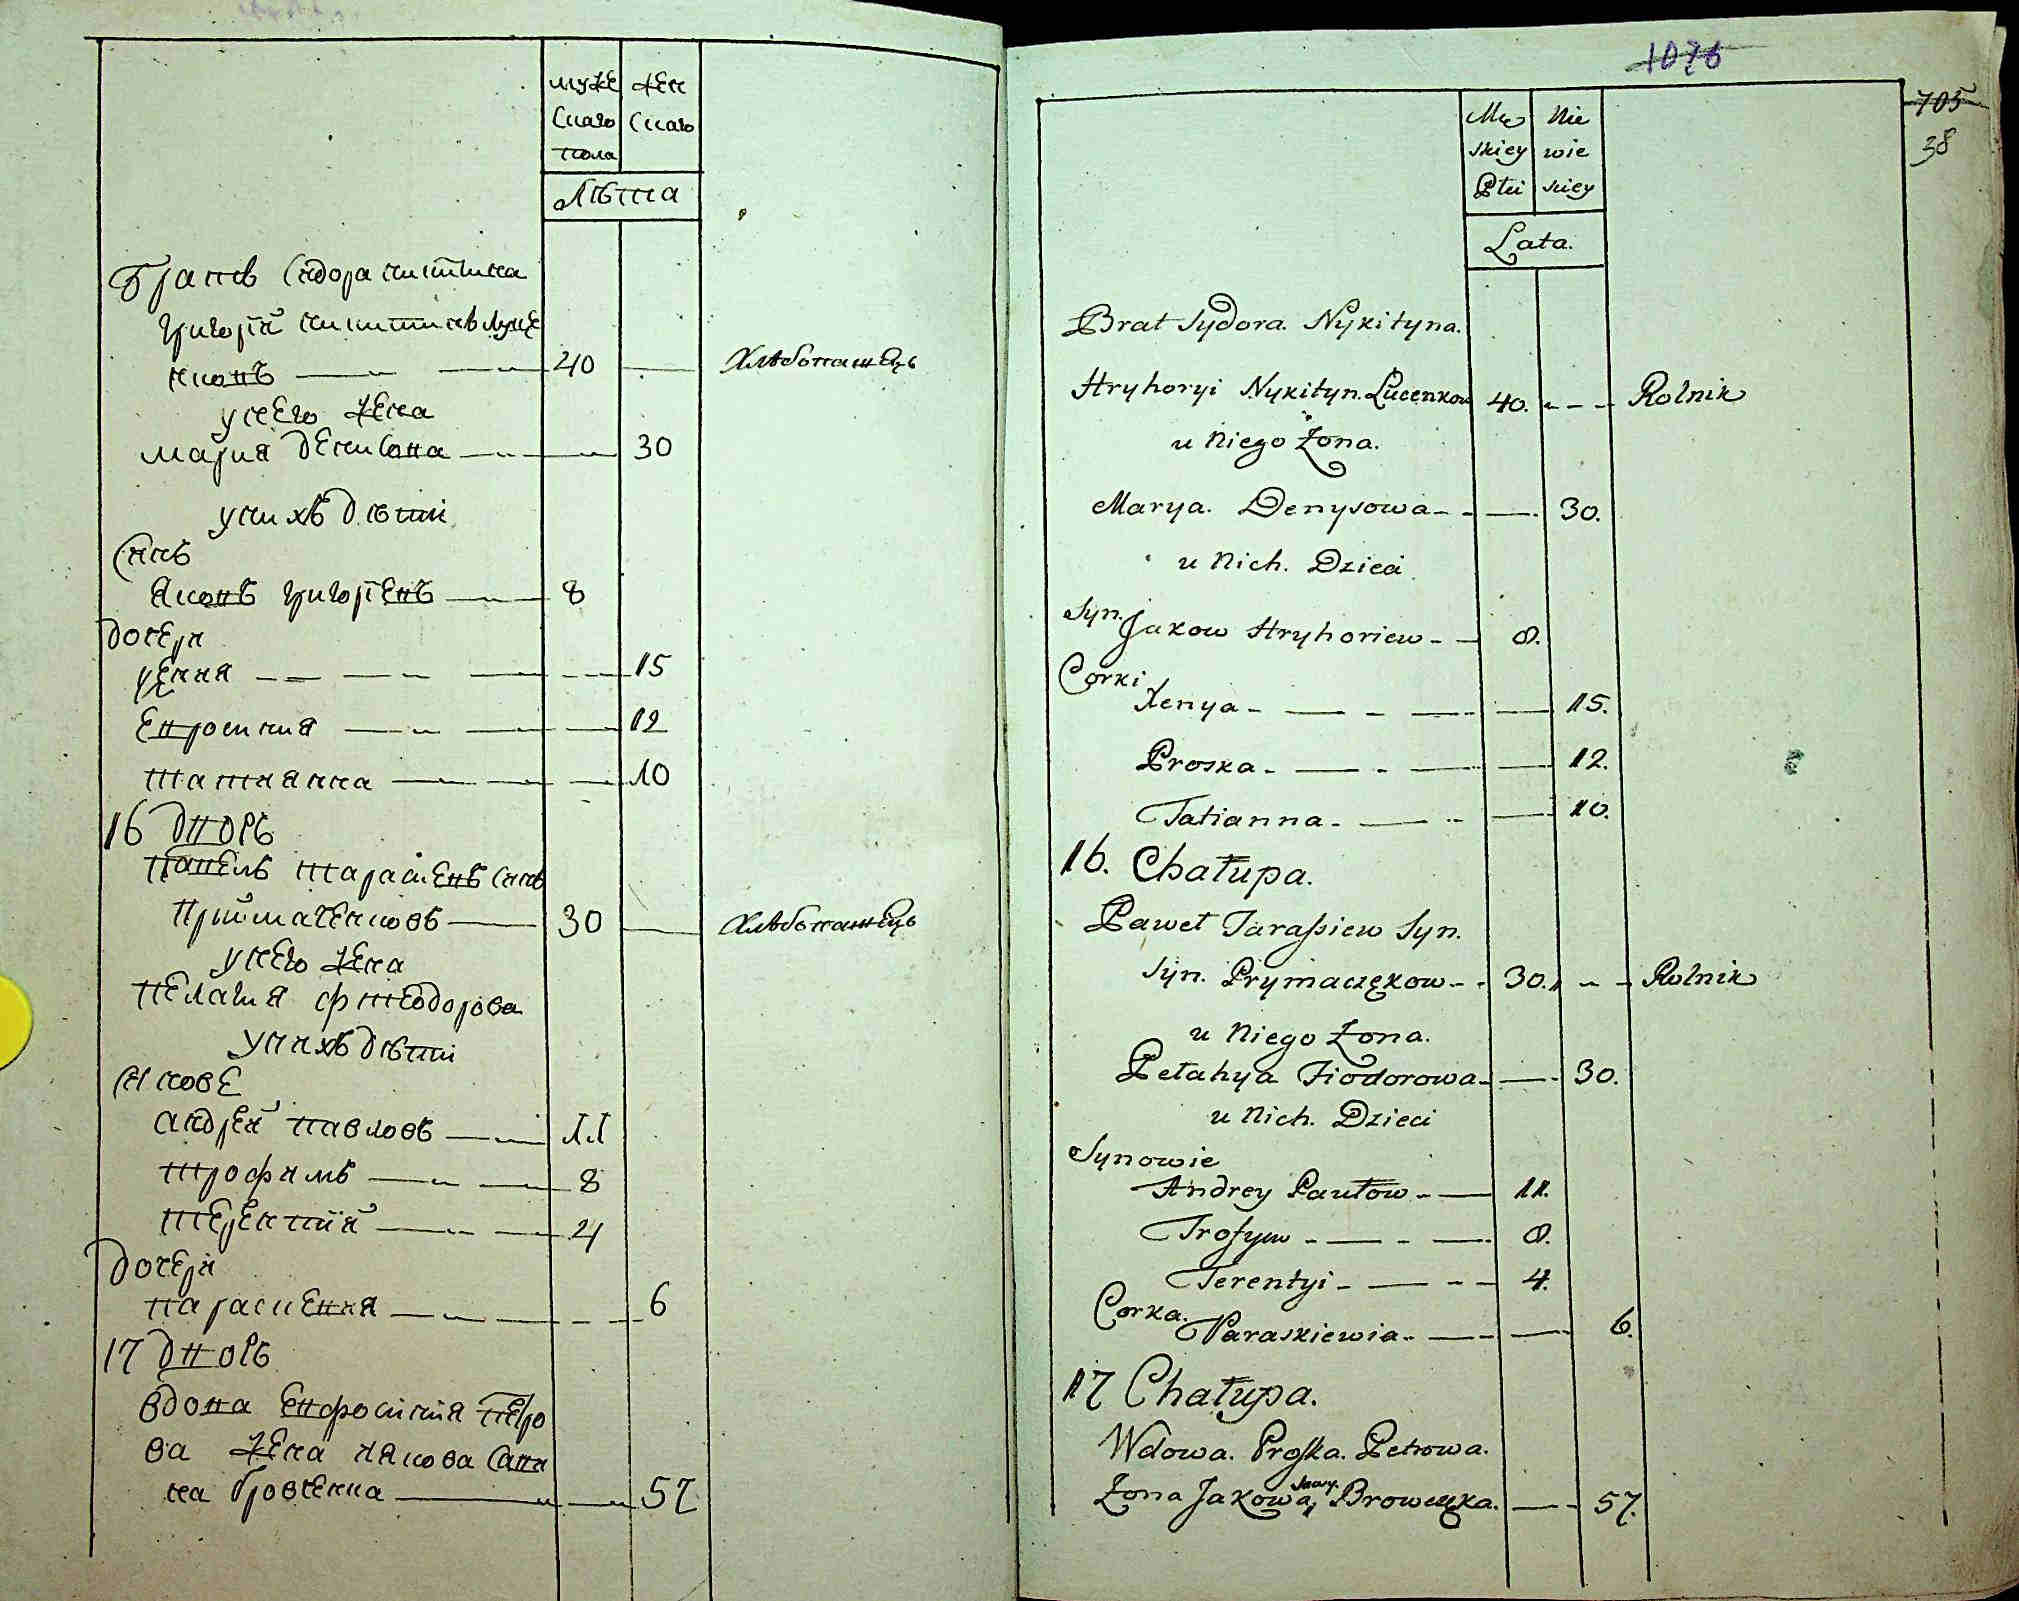 муже
скаго
пола
жен
скаго
Лѣта
Братъ Сидора никитина
григорій никитинъ луце
нковъ 40 Хлѣбопашецъ
у него жена
мария денисова 30
у них дѣти
Сынъ
Яковъ григоріевъ 8
дочери
ҳения 15
Евросиния 12
татиянна 10
16 дворъ
Павелъ тарасиевъ сынъ
Приймаченковъ 30 Хлѣбопашецъ
у него жена
пелагия фтеодорова
у нихъ дѣти
Сынове
андрей павловъ 11
трофимъ 8
терентий 4
дочери
параскевия 6
17 дворъ
вдова Евфросиния петро
ва жена иякова
на бровченка 57
1076
705
38
Mę
skiey
Płci
Nie
wie
skiey
Lata.
Brat Sydora. Nykityna.
Hryhoryi Nykityn. Łucenkow 40. Rolnik
u Niego Żona.
Marya. Denysowa 30.
u Nich. Dzieci
Syn. Jakow Hryhoriew 8.
Corki
Xenya 15.
Proska 12.
Tatianna 10.
16. Chałupa.
Paweł Tarasiew Syn.
Syn. Prymaczękow 30. Rolnik
u Niego Żona.
Pełahya Fiodorowa 30.
u Nich. Dzieci
Synowie
Andrey Pawłow 11.
Trofym 8.
Terentyi 4.
Corka.
Paraskiewia 6.
17 Chałupa.
Wdowa. Proska. Petrowa.
Żona Jakowa, Browczęka. 57.